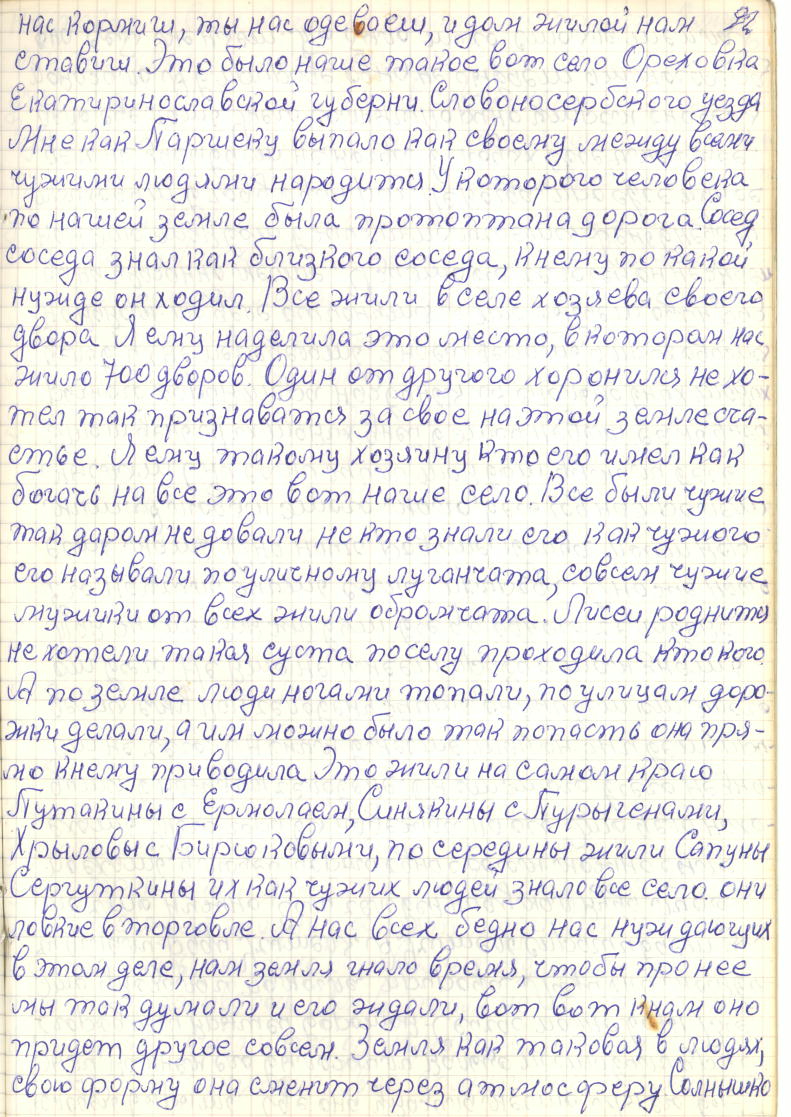 нас кормиш, ты нас одеваеш, и дом жилой нам 92
ставиш. Это было наше такое вот село Ореховка
Екатиринославской губерни. Словоносербского уезда
Мне как Паршеку выпало как своему между всеми
чужими людями народится. У которого человека
по нашей земле была протоптана дорога. Сосед,
соседа знал как близкого соседа, к нему по какой
нужде он ходил. Все жили в селе хозяева своего
двора. Я ему наделила это место, в котором нас
жило 700 дворов. Один от другого хоронился не хо-
тел так признаватся за свое на этой земле сча-
стье. Я ему такому хозяину кто его имел как
богачь на все это вот наше село. Все были чужие
так даром не довали не кто знали его как чужого
его называли по уличному луганчата, совсем чужие
мужики от всех жили обромчата. Лисеи роднится
не хотели такая суста по селу проходила кто кого.
А по земле люди ногами топали, по улицам доро-
жки делали, а им можно было так попасть она пря-
мо к нему приводила. Это жили на самом краю
Путакины с Ермолаем, Синякины с Пурыгенами,
Хрыловы с Бирюковыми, по середины жили Сапуны
Сергуткины их как чужих людей знало все село. они
ловкие в торговле. А нас всех бедно нас нуждающих
в этом деле, нам земля гнало время, чтобы про нее
мы так думали и его ждали, вот вот к нам оно
придет другое совсем. Земля как таковая в людях,
свою форму она сменит через атмосферу. Солнышко